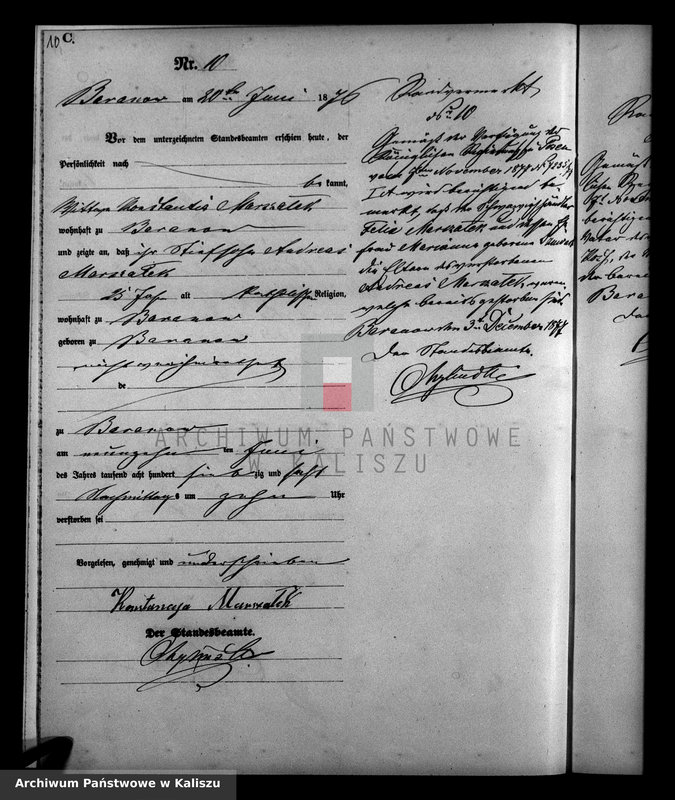 10 C.
Nr. 10
Baranow am 20ten Juni 1876
Vor dem unterzeichneten Standesbeamten erschien heute, der
Persönlichkeit nach
bekannt,
Wittwe Konstantia Marszalek
wohnhaft zu Baranow
und zeigte an, daß ihr Stiefsohn Andreas
Marszalek
25 Jahr alt katholischer Religion,
wohnhaft zu Baranow
geboren zu Baranow
nicht verheirathet
de
zu Baranow
am neunzehn ten Juni
des Jahres tausend acht hundert siebzig und sechs
Nachmittags um zehn Uhr
verstorben sei
Vorgelesen, genehmigt und unterschrieben
Konstancyja Marszałek
Der Standesbeamte.
Randvermerk
No 10
Gemäß der Verfügung der
Königlichen
vom November 1877
Ist wird berichtigend be
merkt, daß der
Felix Marszalek und dessen E
frau Marianna geborene
die Eltern des verstorbenen
Andreas Marszalek waren,
welche bereits gestorben sind
Baranow den 3ten December 1877
Der Standesbeamte.
ARCHIWUM PAŃSTWOWE
W KALISZU
Gemäß
Baranow
Archiwum Państwowe w Kaliszu